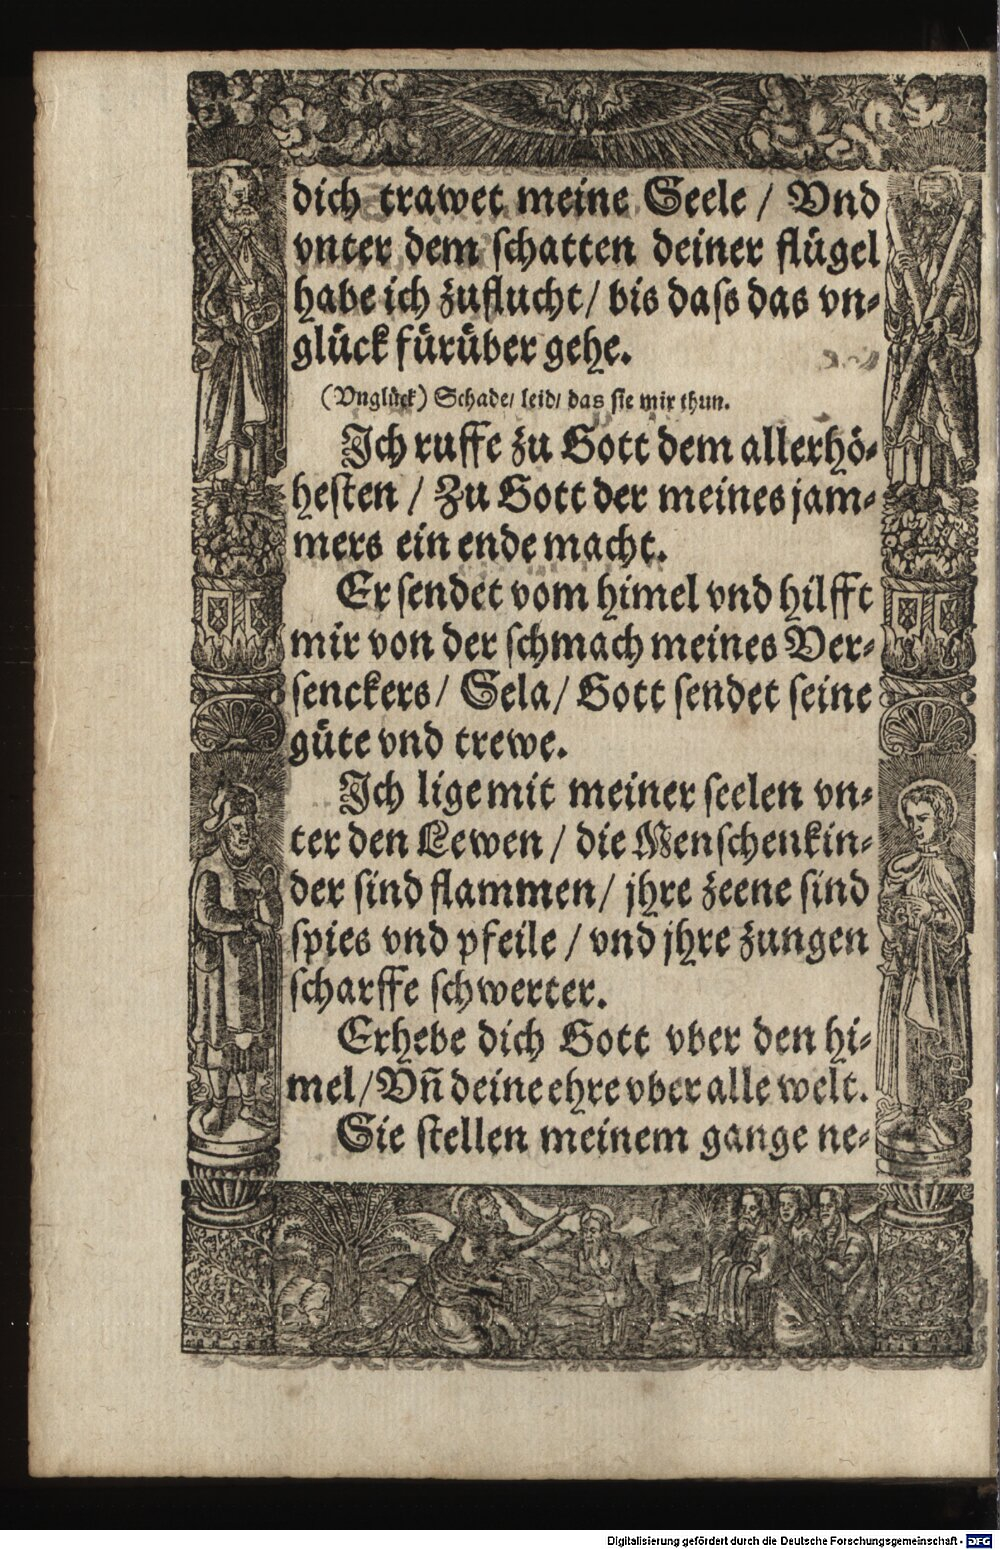 dich trawet meine Seele / Vnd
vnter dem schatten deiner flügel
habe ich zuflucht / bis dass das vn-
glück fürüber gehe.
(Vnglück) Schade / leid / das sie mir thun.
Ich ruffe zu Gott dem allerhö-
hesten / Zu Gott der meines jam-
mers ein ende macht.
Er sendet vom himel vnd hilfft
mir von der schmach meines Ver-
senckers / Sela / Gott sendet seine
güte vnd trewe.
Ich lige mit meiner seelen vn-
ter den Lewen / die Menschenkin-
der sind flammen / jhre zeene sind
spies vnd pfeile / vnd jhre zungen
scharffe schwerter.
Erhebe dich Gott vber den hi-
mel / Vñ deine ehre vber alle welt.
Sie stellen meinem gange ne-
Digitalisierung gefördert durch die Deutsche Forschungsgemeinschaft - DFG